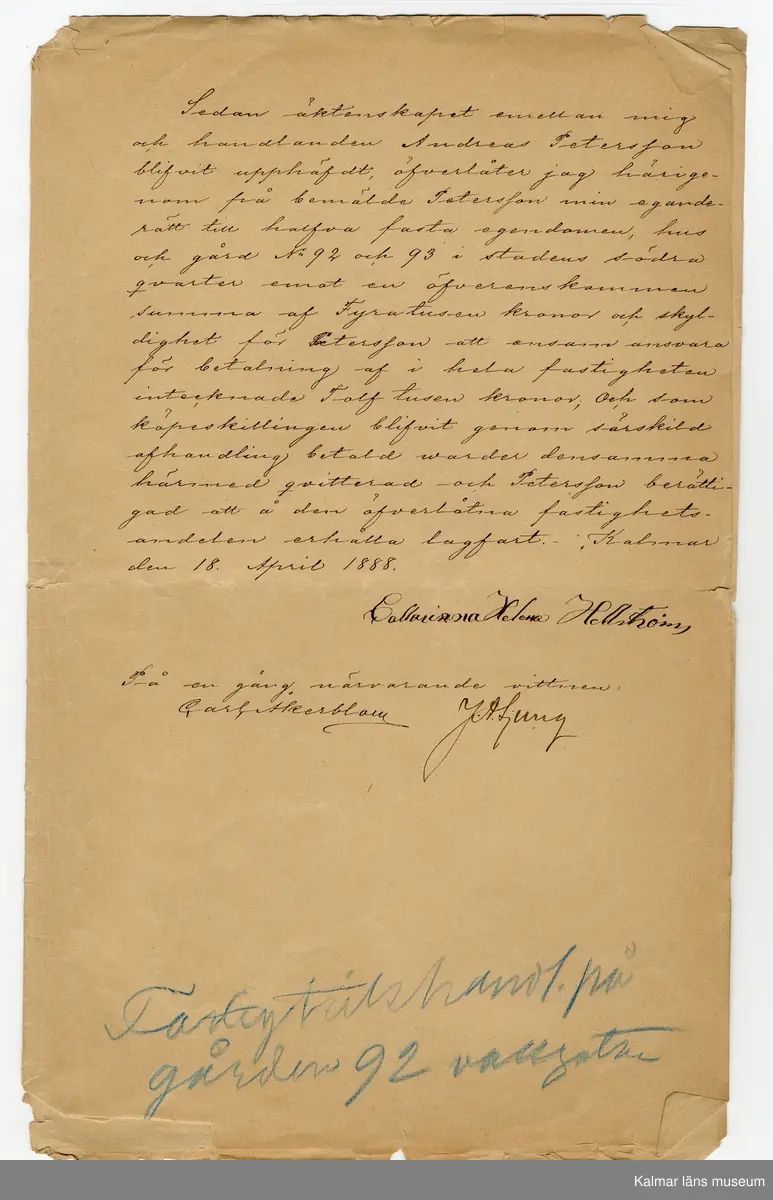 Sedan äktenskapet emellan mig
och handlanden Andreas Petersson
blifvit upphäfdt, öfverlåter jag härige-
nom på bemälde Petersson min egande-
rätt till halfva fasta egendomen, hus
och gård No 92 och 93 i stadens södra
qvarter emot en öfverenskommen
summa af Fyratusen kronor och skyl-
dighet för Petersson att ensam ansvara
för betalning af i hela fastigheten
intecknade Tolf tusen kronor; Och som
köpeskillingen blifvit genom särskild
afhandling betald warder densamma
härmed qvitterad och Petersson berätti-
gad att å den öfverlåtna fastighets-
andelen erhålla lagfart. - Kalmar
den 18. April 1888.
Cattarinna Helena Hellström
På en gång närvarande vittnen:
Carl Åkerblom J. A. Ljung
Fastighetshandl. på
gården 92 vallgatan
Kalmar läns museum